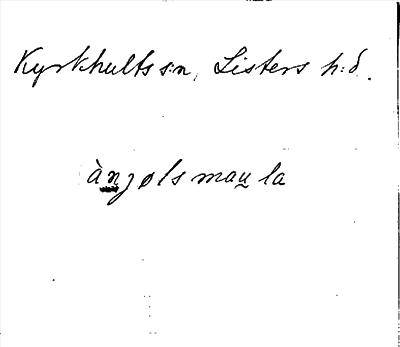 Kyrkhults s:n, Listers h:d.
àn̰jølsmaṵla